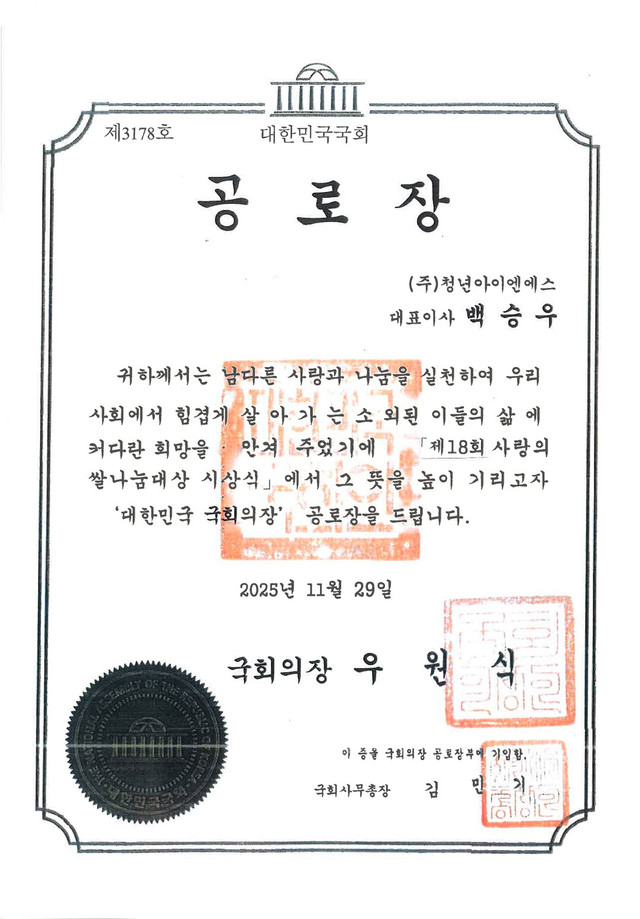 제3178호
대한민국국회
공로장
(주)청년아이엔에스
대표이사 백승우
귀하께서는 남다른 사랑과 나눔을 실천하여 우리
사회에서 힘겹게 살아가는 소외된 이들의 삶에
커다란 희망을 안겨 주었기에 「제18회 사랑의
쌀나눔대상 시상식」에서 그 뜻을 높이 기리고자
'대한민국 국회의장' 공로장을 드립니다.
2025년 11월 29일
국회의장 우원식
NATIONAL ASSEMBLY OF THE REPUBLIC OF KOREA
대한민국국회
이 증을 국회의장 공로장부에 기입함.
국회사무총장 김민기